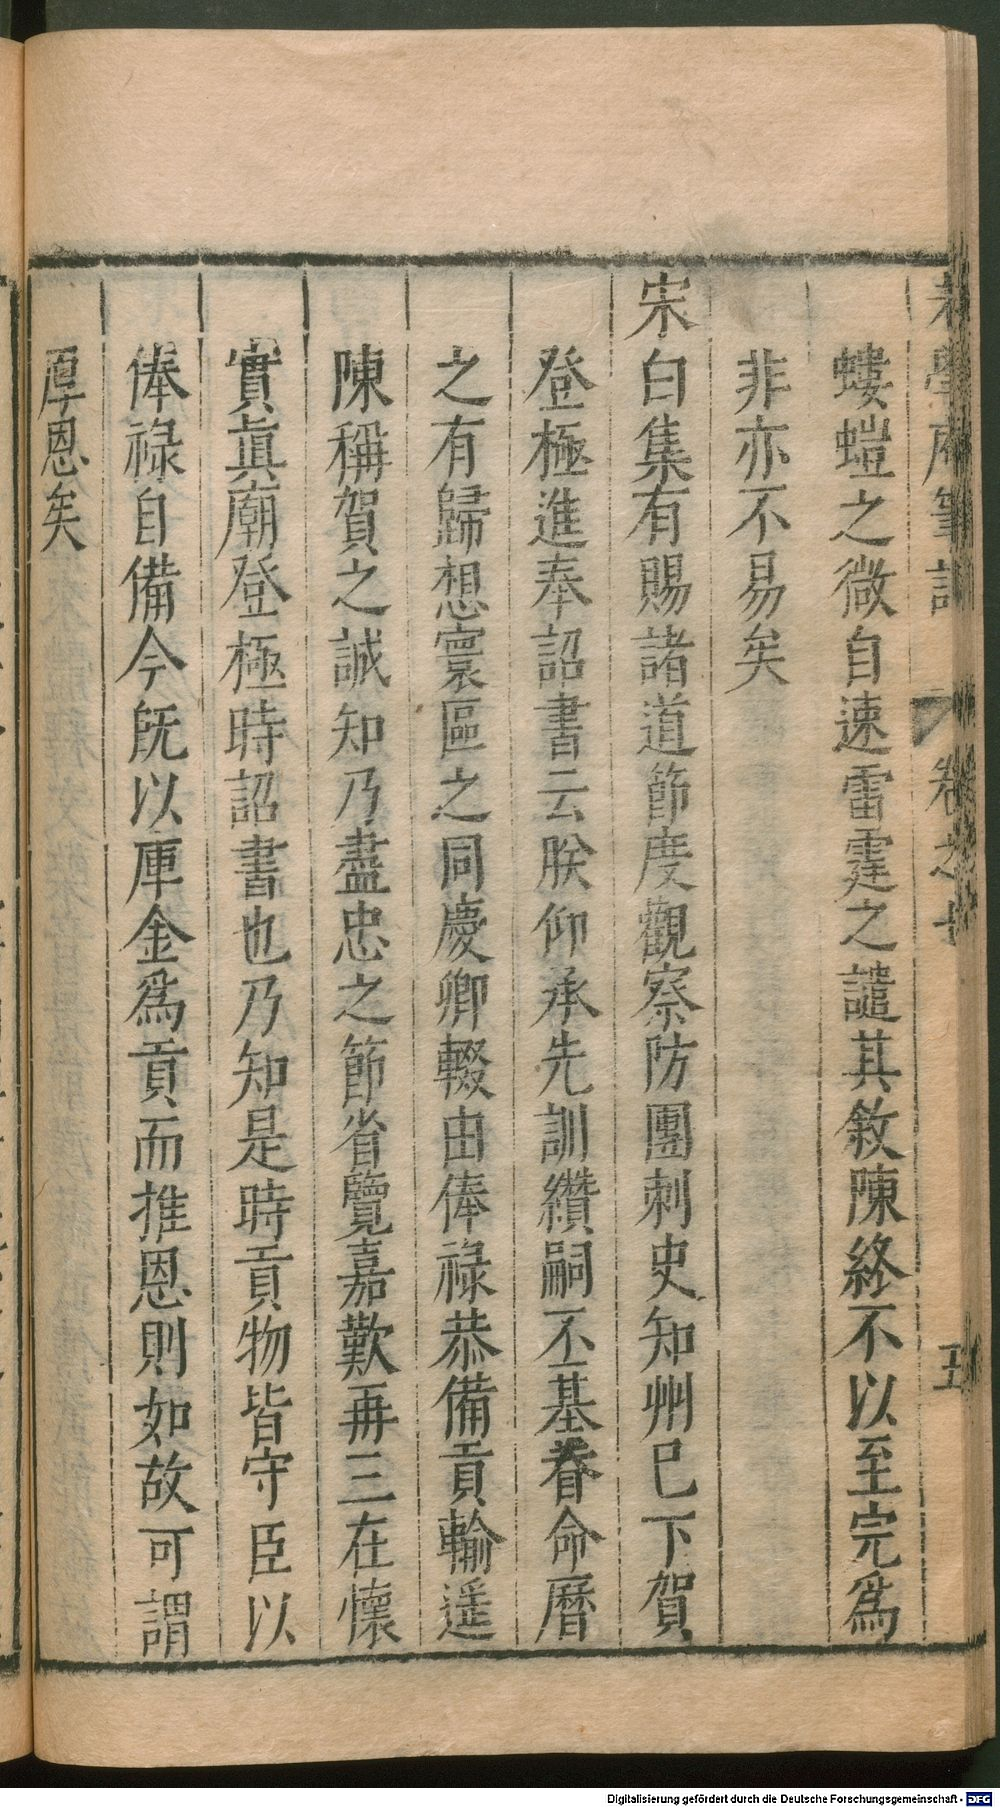 老學庵筆記 卷之七 五
螻螘之微自速雷霆之譴其敘陳終不以至完爲
非亦不易矣
宋白集有賜諸道節度觀察防團刺史知州已下賀
登極進奉詔書云朕仰承先訓纘嗣丕基眷命曆
之有歸想寰區之同慶卿輟由俸祿恭備貢輸遥
陳稱賀之誠知乃盡忠之節省覽嘉歎再三在懷
實眞廟登極時詔書也乃知是時貢物皆守臣以
俸祿自備今旣以庫金爲貢而推恩則如故可謂
厚恩矣
Digitalisierung gefördert durch die Deutsche Forschungsgemeinschaft - DFG